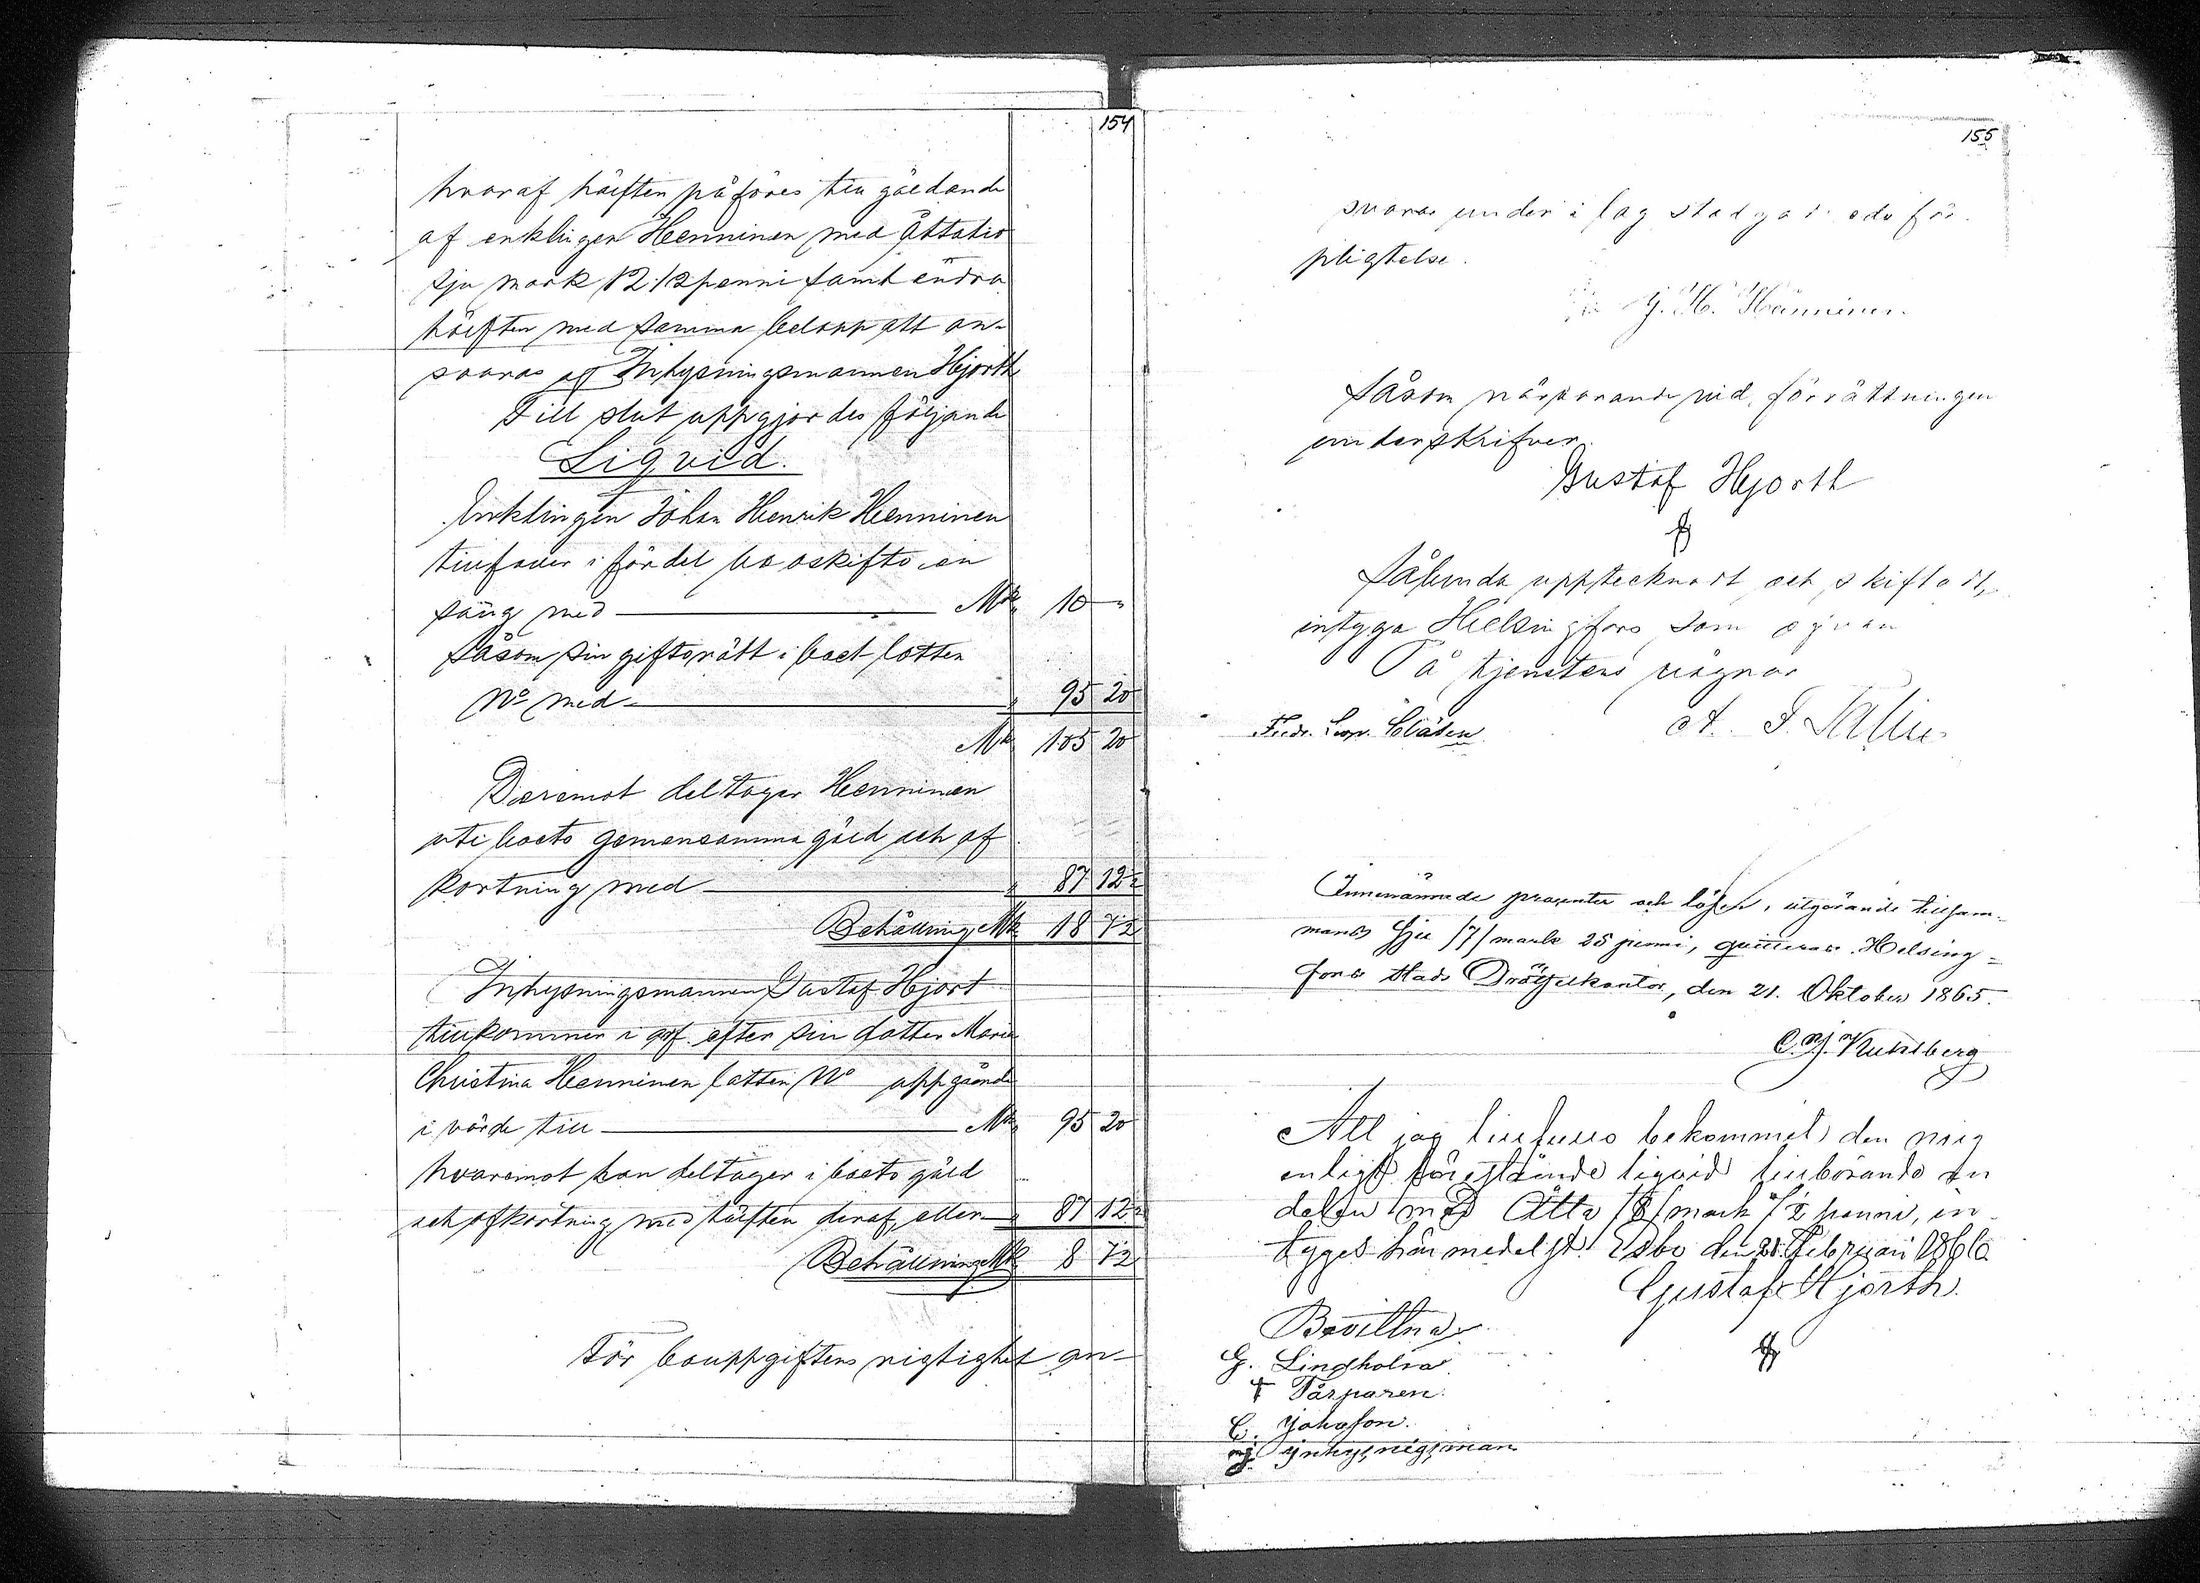 154
hvaraf hälften påföres till gäldande
af enklingen Henninen med Åttatio
sju mark 12 1/2 penni samt andra
hälften med samma belopp att an-
svaras af Inhysningsmannen Hjorth
Till slut uppgjordes följande
Liqvid.
Enklingen Johan Henrik Henninen
tillfaller i fördel bo oskifto en
säng med Mk 10 "
Såsom sin giftorätt i boet lotten
No med " 95 20
Mk 105 20
Däremot deltager Henninen
uti boets gemensamma gäld och af
kortning med " 87 12 1/2
Behållning Mk 18 7 1/2
Inhysningsmannen Gustaf Hjort
tillkommer i arf efter sin dotter Maria
Christina Henninen lotten No uppgående
i värde till Mk 95 20
hvaremot han deltager i boets gäld
och afkortning med hälften deraf eller " 87 12 1/2
Behållning Mk 8 7 1/2
För bouppgiftens rigtighet an-
155
svaras under i lag stadgad edsför-
pligtelse.
J. H. Hänninen.
Såsom närvarande vid förrättningen
underskrifver.
Gustaf Hjorth
Sålunda upptecknadt och skiftadt,
intyga Helsingfors som ofvan
På tjenstens vägnar
Fredr. Leop. Clásen A. F. Salin
Innenämnde procenter och lösen, utgörande tillsam-
mans Sju /7/ mark 25 penni, quitteras. Helsing-
fors Stads Drätselkontor, den 21. Oktober 1865.
C. J. Kuhlberg
Att jag tillfullo bekommit den mig
enligt förestående liqvid tillhörande an
delen med Åtta /8/ mark 7 1/2 penni, in
tygas härmedelst. Esbo den 21. Februari 1866
Gustaf Hjorth.
Bevittna
G. Lindholm
Torparen.
C. Johnson.
Inhysningsman